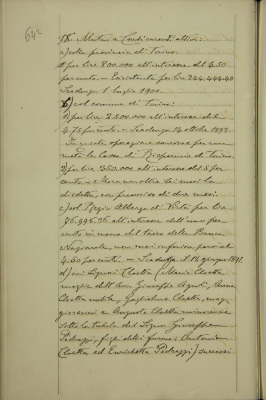 642
IX. Mutui a Conti correnti attivi:
a) colla provincia di Torino
per lire 800.000 all'interesse del 4.50
per cento – Esistente per lire 244.444.40
Scadenza 1 luglio 1900.
b) col comune di Torino:
1) per lire 2.500.000 all'interesse del
4.75 per cento – Scadenza 14 ottobre 1892.
In questa operazione concorse per una
metà la Cassa di Risparmio di Torino.
2) per lire 350.000 all'interesse del 5 per
cento, e non oltre dei mesi la
disdetta, con preavviso di due mesi.
c) col Regio Albergo di Virtù per lire
76.496.36 all'interesse dell'uno per
cento in meno del tasso della Banca
Nazionale, non mai inferiore però al
4.50 per cento – Scadenza il 18 giugno 1891.
d) coi signori Cletta (Maria Cletta
moglie dell'Avv. Giuseppe Agnoli, Anna
Cletta nubile, Guglielmo Cletta, mag-
giorenni e Augusto Cletta minorenne
sotto la tutela del signor Giuseppe
Pedrazzi, figli del fu Antonio
Cletta ed Enrichetta Pedrazzi) successi